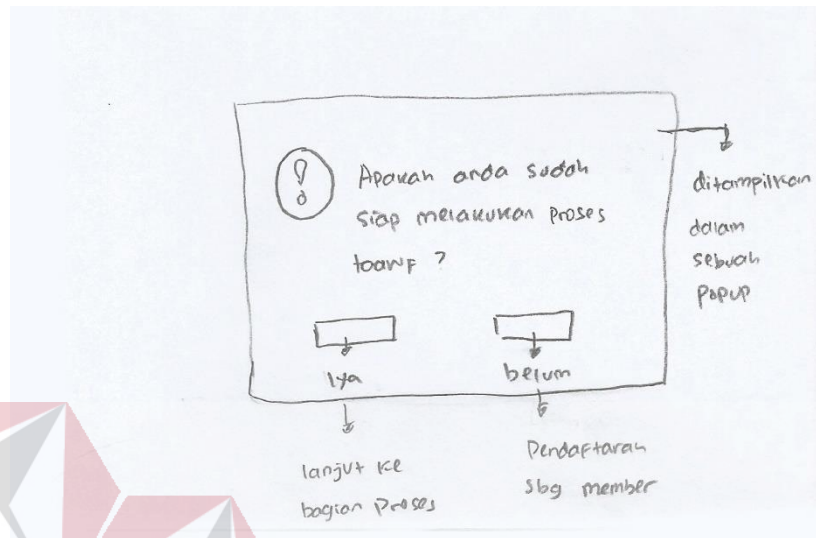 Apakah anda sudah
siap melakukan proses
toawf ?
ditampilkan
dalam
sebuah
Popup
Iya
belum
lanjut ke
bagian Proses
Pendaftaran
sbg member